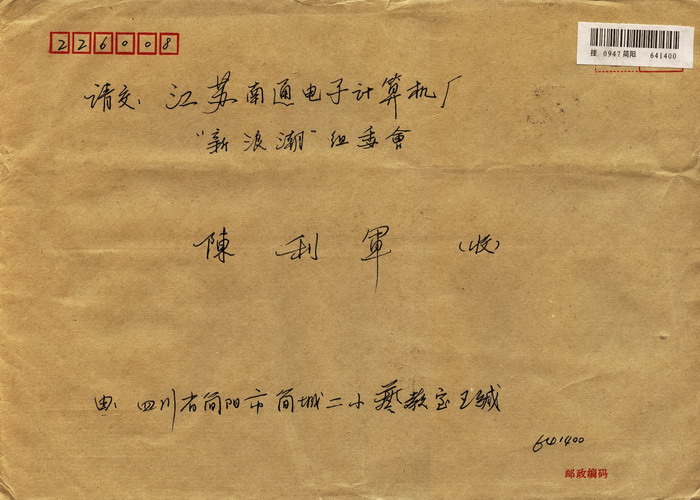 226008
挂 0947 简阳 641400
请交：江苏南通电子计算机厂
“新浪潮”组委會
陳利軍（收）
由：四川省简阳市简城二小艺教室王诚
641400
邮政编码